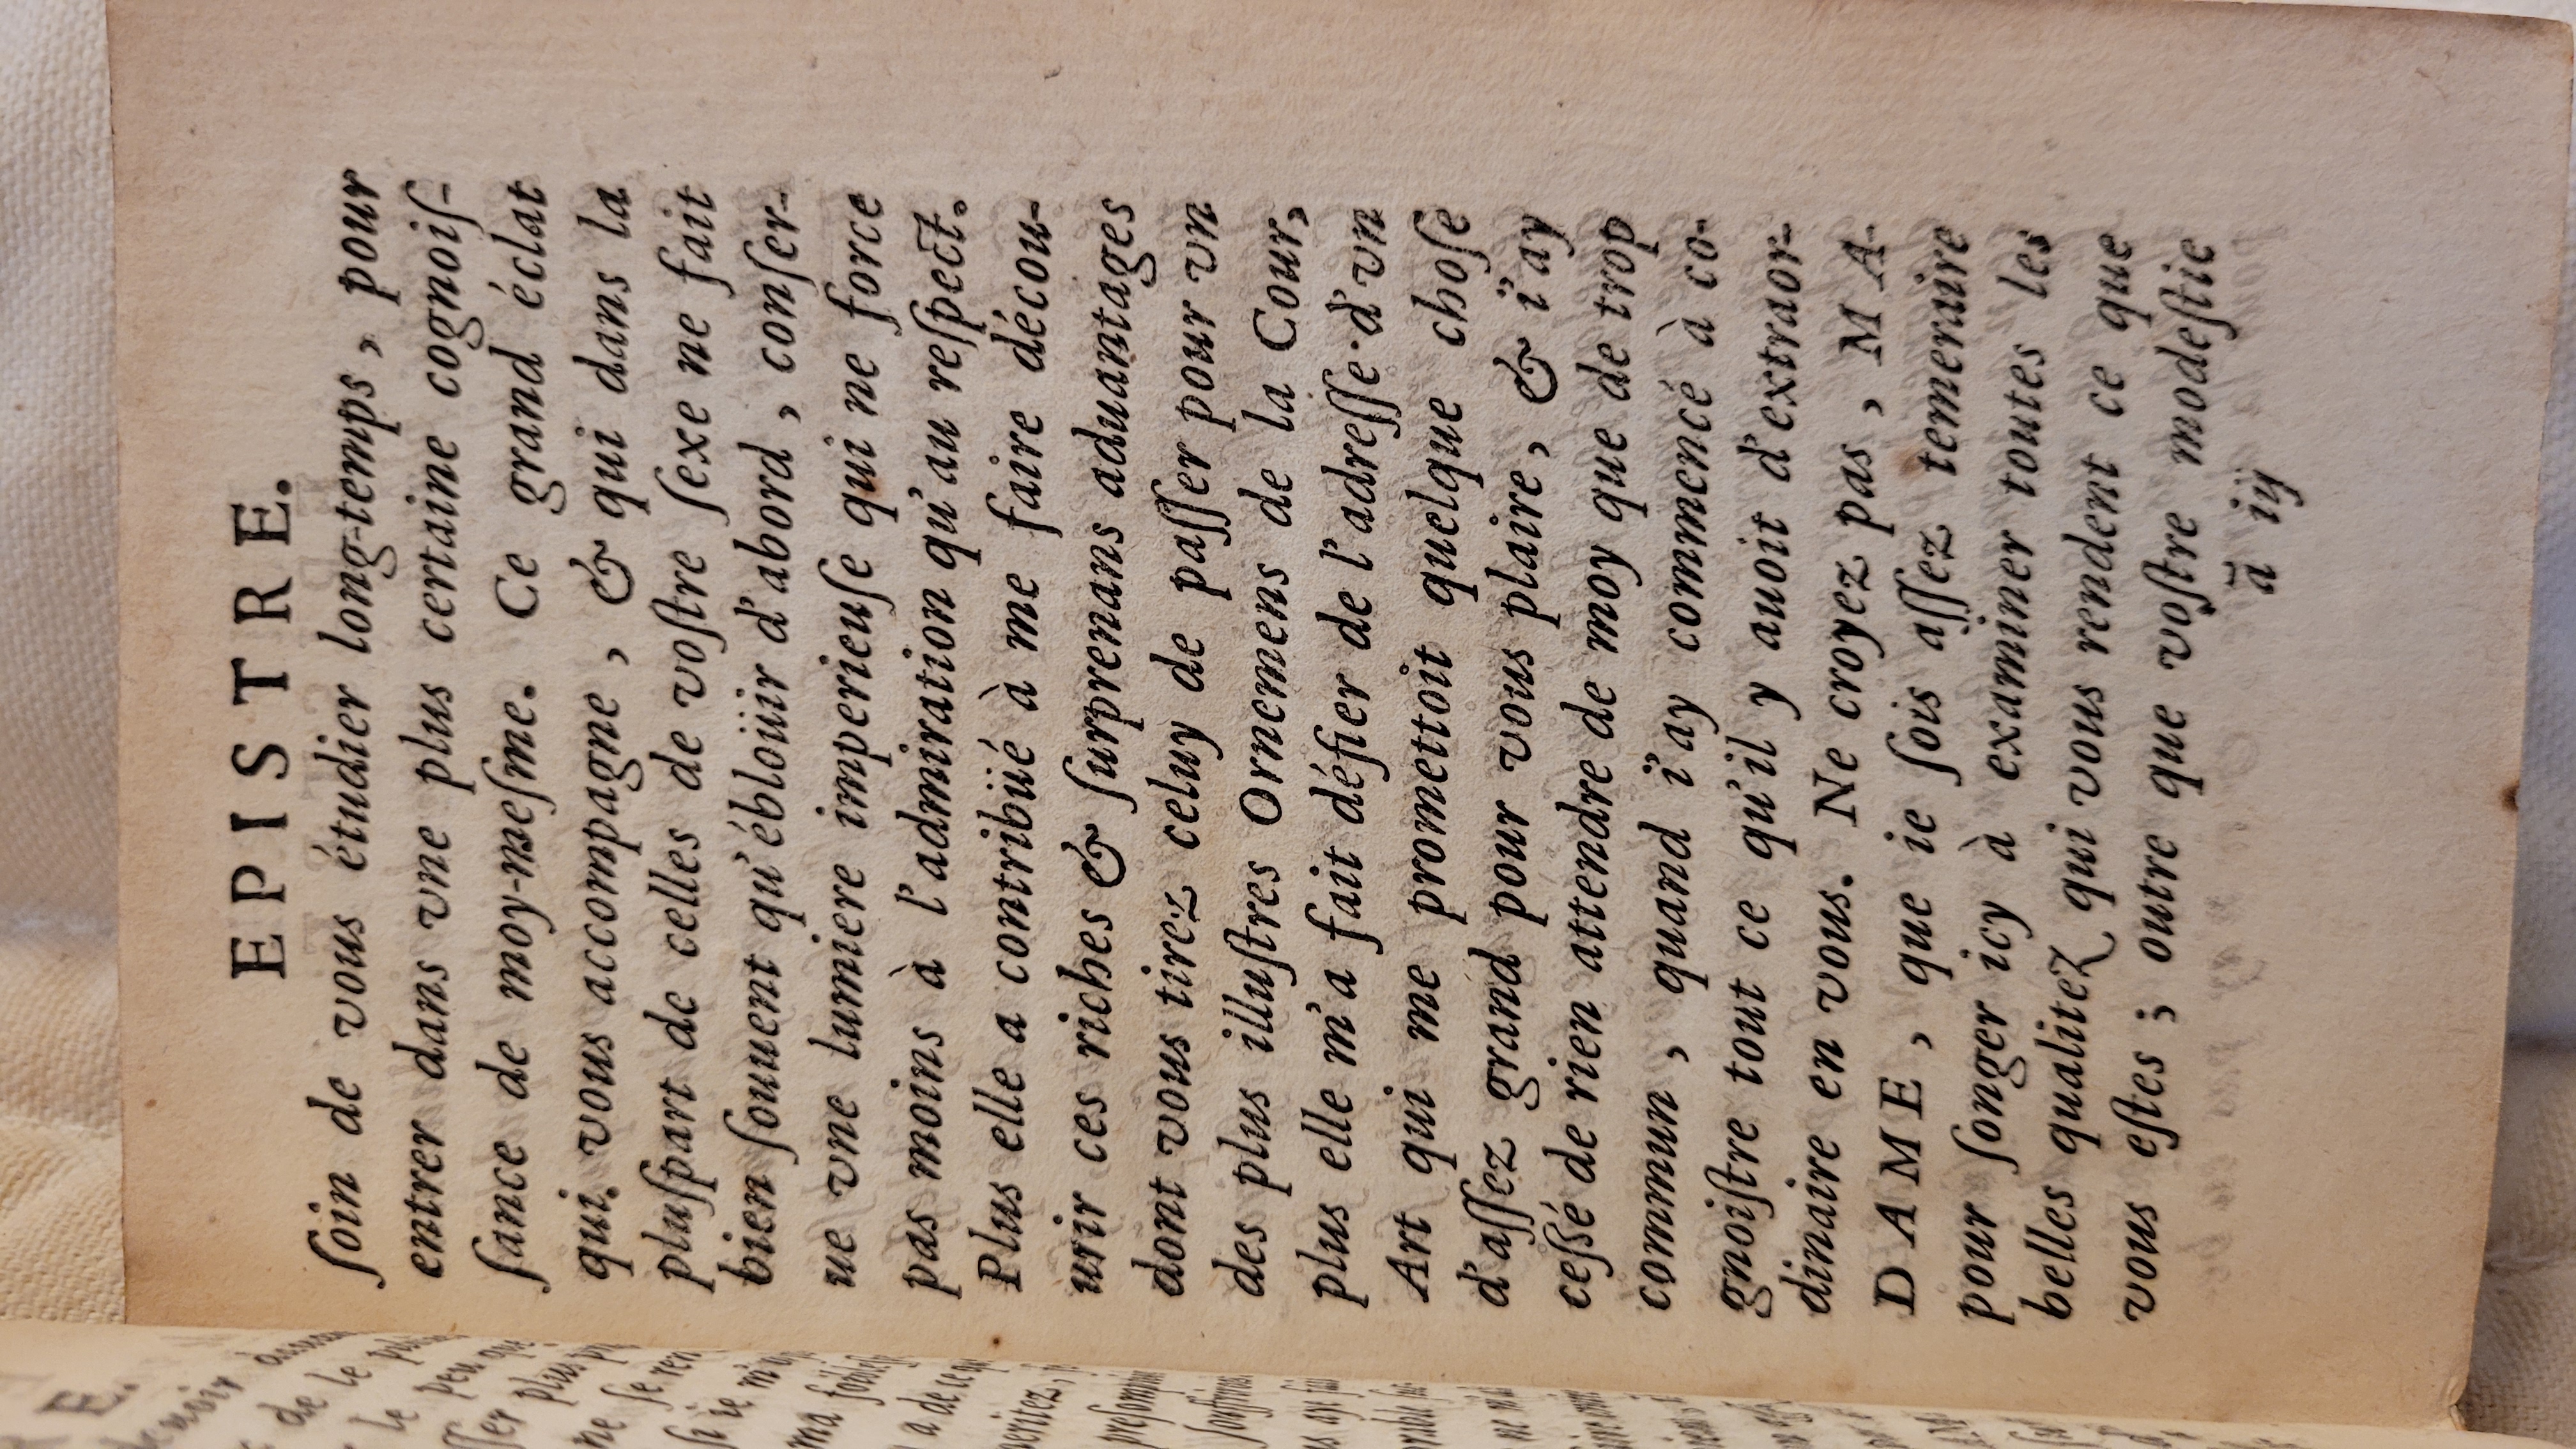 EPISTRE.
ſoin de vous étudier long-temps, pour
entrer dans vne plus certaine cognoiſ-
ſance de moy-meſme. Ce grand éclat
qui vous accompagne, & qui dans la
pluſpart de celles de voſtre ſexe ne fait
bien ſouuent qu'ébloüir d'abord, conſer-
ue vne lumiere imperieuſe qui ne force
pas moins à l'admiration qu'au reſpect.
Plus elle a contribüé à me faire décou-
urir ces riches & ſurprenans aduantages
dont vous tirez celuy de paſſer pour vn
des plus illuſtres Ornemens de la Cour,
plus elle m'a fait défier de l'adreſſe d'vn
Art qui me promettoit quelque choſe
d'aſſez grand pour vous plaire, & i'ay
ceſſé de rien attendre de moy que de trop
commun, quand i'ay commencé à co-
gnoiſtre tout ce qu'il y auoit d'extraor-
dinaire en vous. Ne croyez pas, MA-
DAME, que ie ſois aſſez temeraire
pour ſonger icy à examiner toutes les
belles qualitez qui vous rendent ce que
vous eſtes ; outre que voſtre modeſtie
ã iij